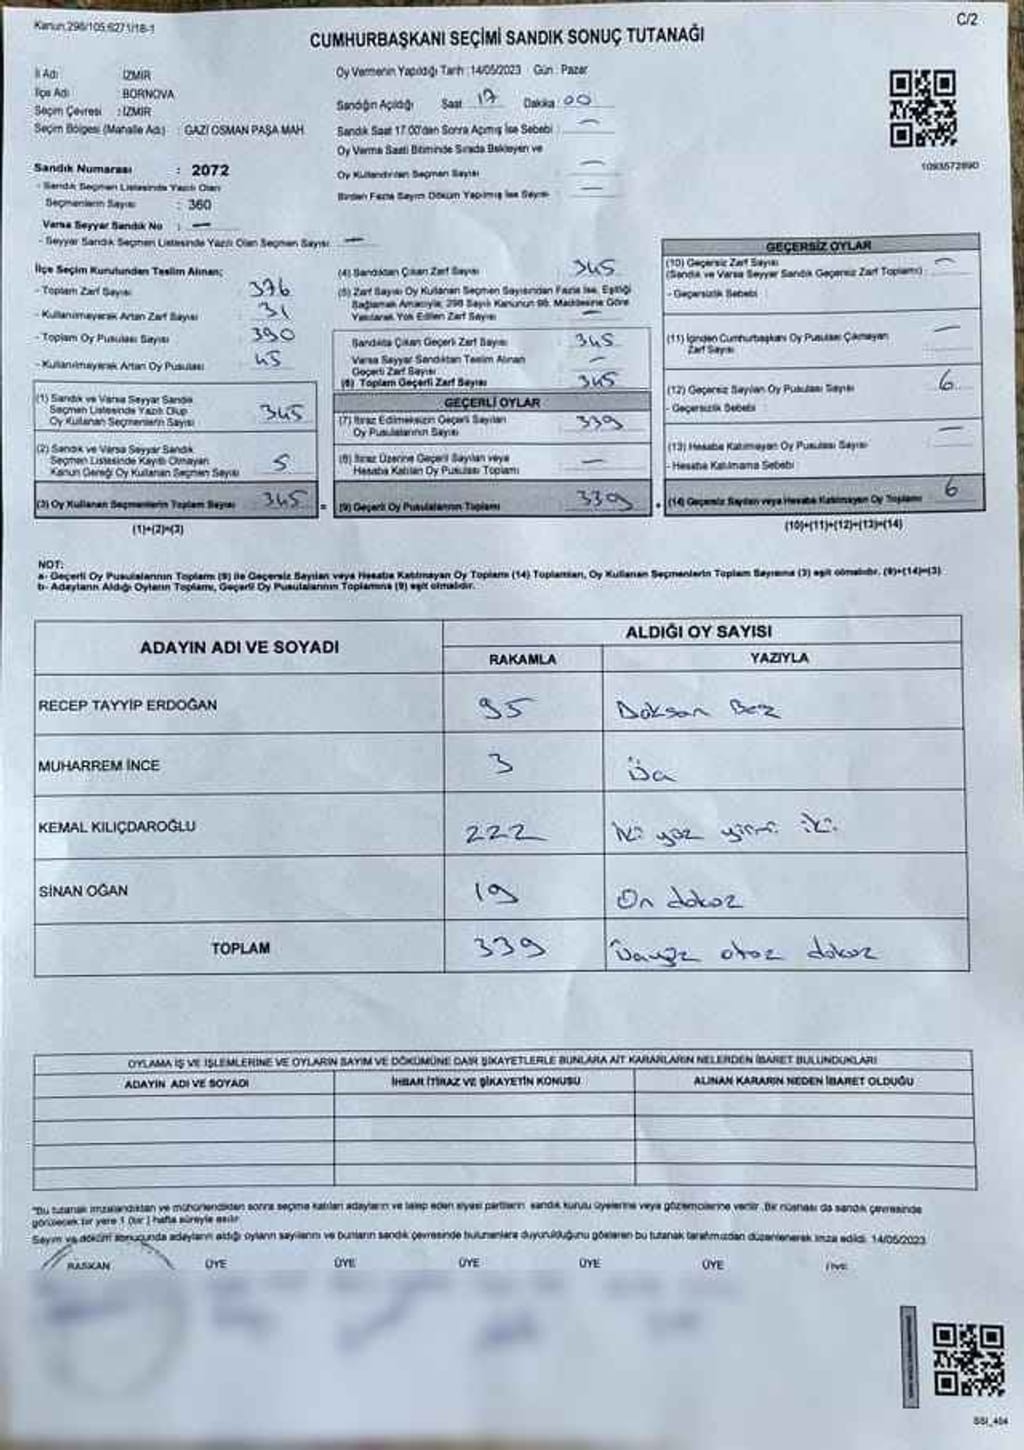 Kanun,298/105,6271/18-1
C/2
CUMHURBAŞKANI SEÇİMİ SANDIK SONUÇ TUTANAĞI
İl Adı : İZMİR
İlçe Adı : BORNOVA
Seçim Çevresi : İZMİR
Seçim Bölgesi (Mahalle Adı) : GAZİ OSMAN PAŞA MAH.
Oy Vermenin Yapıldığı Tarih :14/05/2023 Gün : Pazar
Sandığın Açıldığı Saat 17 Dakika 00
Sandık Saat 17.00'den Sonra Açılmış İse Sebebi : —
Oy Verme Saati Bitiminde Sırada Bekleyen ve
Oy Kullandırılan Seçmen Sayısı —
Birden Fazla Sayım Döküm Yapılmış İse Sayısı —
1093572890
Sandık Numarası : 2072
- Sandık Seçmen Listesinde Yazılı Olan
Seçmenlerin Sayısı : 360
Varsa Seyyar Sandık No : —
- Seyyar Sandık Seçmen Listesinde Yazılı Olan Seçmen Sayısı : —
İlçe Seçim Kurulundan Teslim Alınan;
- Toplam Zarf Sayısı : 376
- Kullanılmayarak Artan Zarf Sayısı : 31
- Toplam Oy Pusulası Sayısı : 390
- Kullanılmayarak Artan Oy Pusulası : 45
(1) Sandık ve Varsa Seyyar Sandık
Seçmen Listesinde Yazılı Olup
Oy Kullanan Seçmenlerin Sayısı 345
(2) Sandık ve Varsa Seyyar Sandık
Seçmen Listesinde Kayıtlı Olmayan
Kanun Gereği Oy Kullanan Seçmen Sayısı 5
(3) Oy Kullanan Seçmenlerin Toplam Sayısı 345
(1)+(2)=(3)
(4) Sandıktan Çıkan Zarf Sayısı 345
(5) Zarf Sayısı Oy Kullanan Seçmen Sayısından Fazla İse, Eşitliği
Sağlamak Amacıyla, 298 Sayılı Kanunun 98. Maddesine Göre
Yakılarak Yok Edilen Zarf Sayısı —
Sandıkta Çıkan Geçerli Zarf Sayısı 345
Varsa Seyyar Sandıktan Teslim Alınan
Geçerli Zarf Sayısı —
(6) Toplam Geçerli Zarf Sayısı 345
GEÇERLİ OYLAR
(7) İtiraz Edilmeksizin Geçerli Sayılan
Oy Pusulalarının Sayısı 339
(8) İtiraz Üzerine Geçerli Sayılan veya
Hesaba Katılan Oy Pusulası Toplamı —
= (9) Geçerli Oy Pusulalarının Toplamı 339
GEÇERSİZ OYLAR
(10) Geçersiz Zarf Sayısı —
(Sandık ve Varsa Seyyar Sandık Geçersiz Zarf Toplamı) :
- Geçersizlik Sebebi :
(11) İçinden Cumhurbaşkanı Oy Pusulası Çıkmayan —
Zarf Sayısı
(12) Geçersiz Sayılan Oy Pusulası Sayısı 6
- Geçersizlik Sebebi :
(13) Hesaba Katılmayan Oy Pusulası Sayısı —
- Hesaba Katılmama Sebebi
+ (14) Geçersiz Sayılan veya Hesaba Katılmayan Oy Toplamı 6
(10)+(11)+(12)+(13)=(14)
NOT:
a- Geçerli Oy Pusulalarının Toplamı (9) ile Geçersiz Sayılan veya Hesaba Katılmayan Oy Toplamı (14) Toplamları, Oy Kullanan Seçmenlerin Toplam Sayısına (3) eşit olmalıdır. (9)+(14)=(3)
b- Adayların Aldığı Oyların Toplamı, Geçerli Oy Pusulalarının Toplamına (9) eşit olmalıdır.
ADAYIN ADI VE SOYADI
ALDIĞI OY SAYISI
RAKAMLA YAZIYLA
RECEP TAYYİP ERDOĞAN 95 Doksan Beş
MUHARREM İNCE 3 Üç
KEMAL KILIÇDAROĞLU 222 İki yüz yirmi iki
SİNAN OĞAN 19 On dokuz
TOPLAM 339 Üçyüz otuz dokuz
OYLAMA İŞ VE İŞLEMLERİNE VE OYLARIN SAYIM VE DÖKÜMÜNE DAİR ŞİKAYETLERLE BUNLARA AİT KARARLARIN NELERDEN İBARET BULUNDUKLARI
ADAYIN ADI VE SOYADI İHBAR İTİRAZ VE ŞİKAYETİN KONUSU ALINAN KARARIN NEDEN İBARET OLDUĞU
*Bu tutanak imzalandıktan ve mühürlendikten sonra seçime katılan adayların ve talep eden siyasi partilerin sandık kurulu üyelerine veya gözlemcilerine verilir. Bir nüshası da sandık çevresinde
görülecek bir yere 1 (bir ) hafta süreyle asılır.
Sayım ve döküm sonucunda adayların aldığı oyların sayılarını ve bunların sandık çevresinde bulunanlara duyurulduğunu gösteren bu tutanak tarafımızdan düzenlenerek imza edildi. 14/05/2023
BAŞKAN ÜYE ÜYE ÜYE ÜYE ÜYE ÜYE
SSI_404